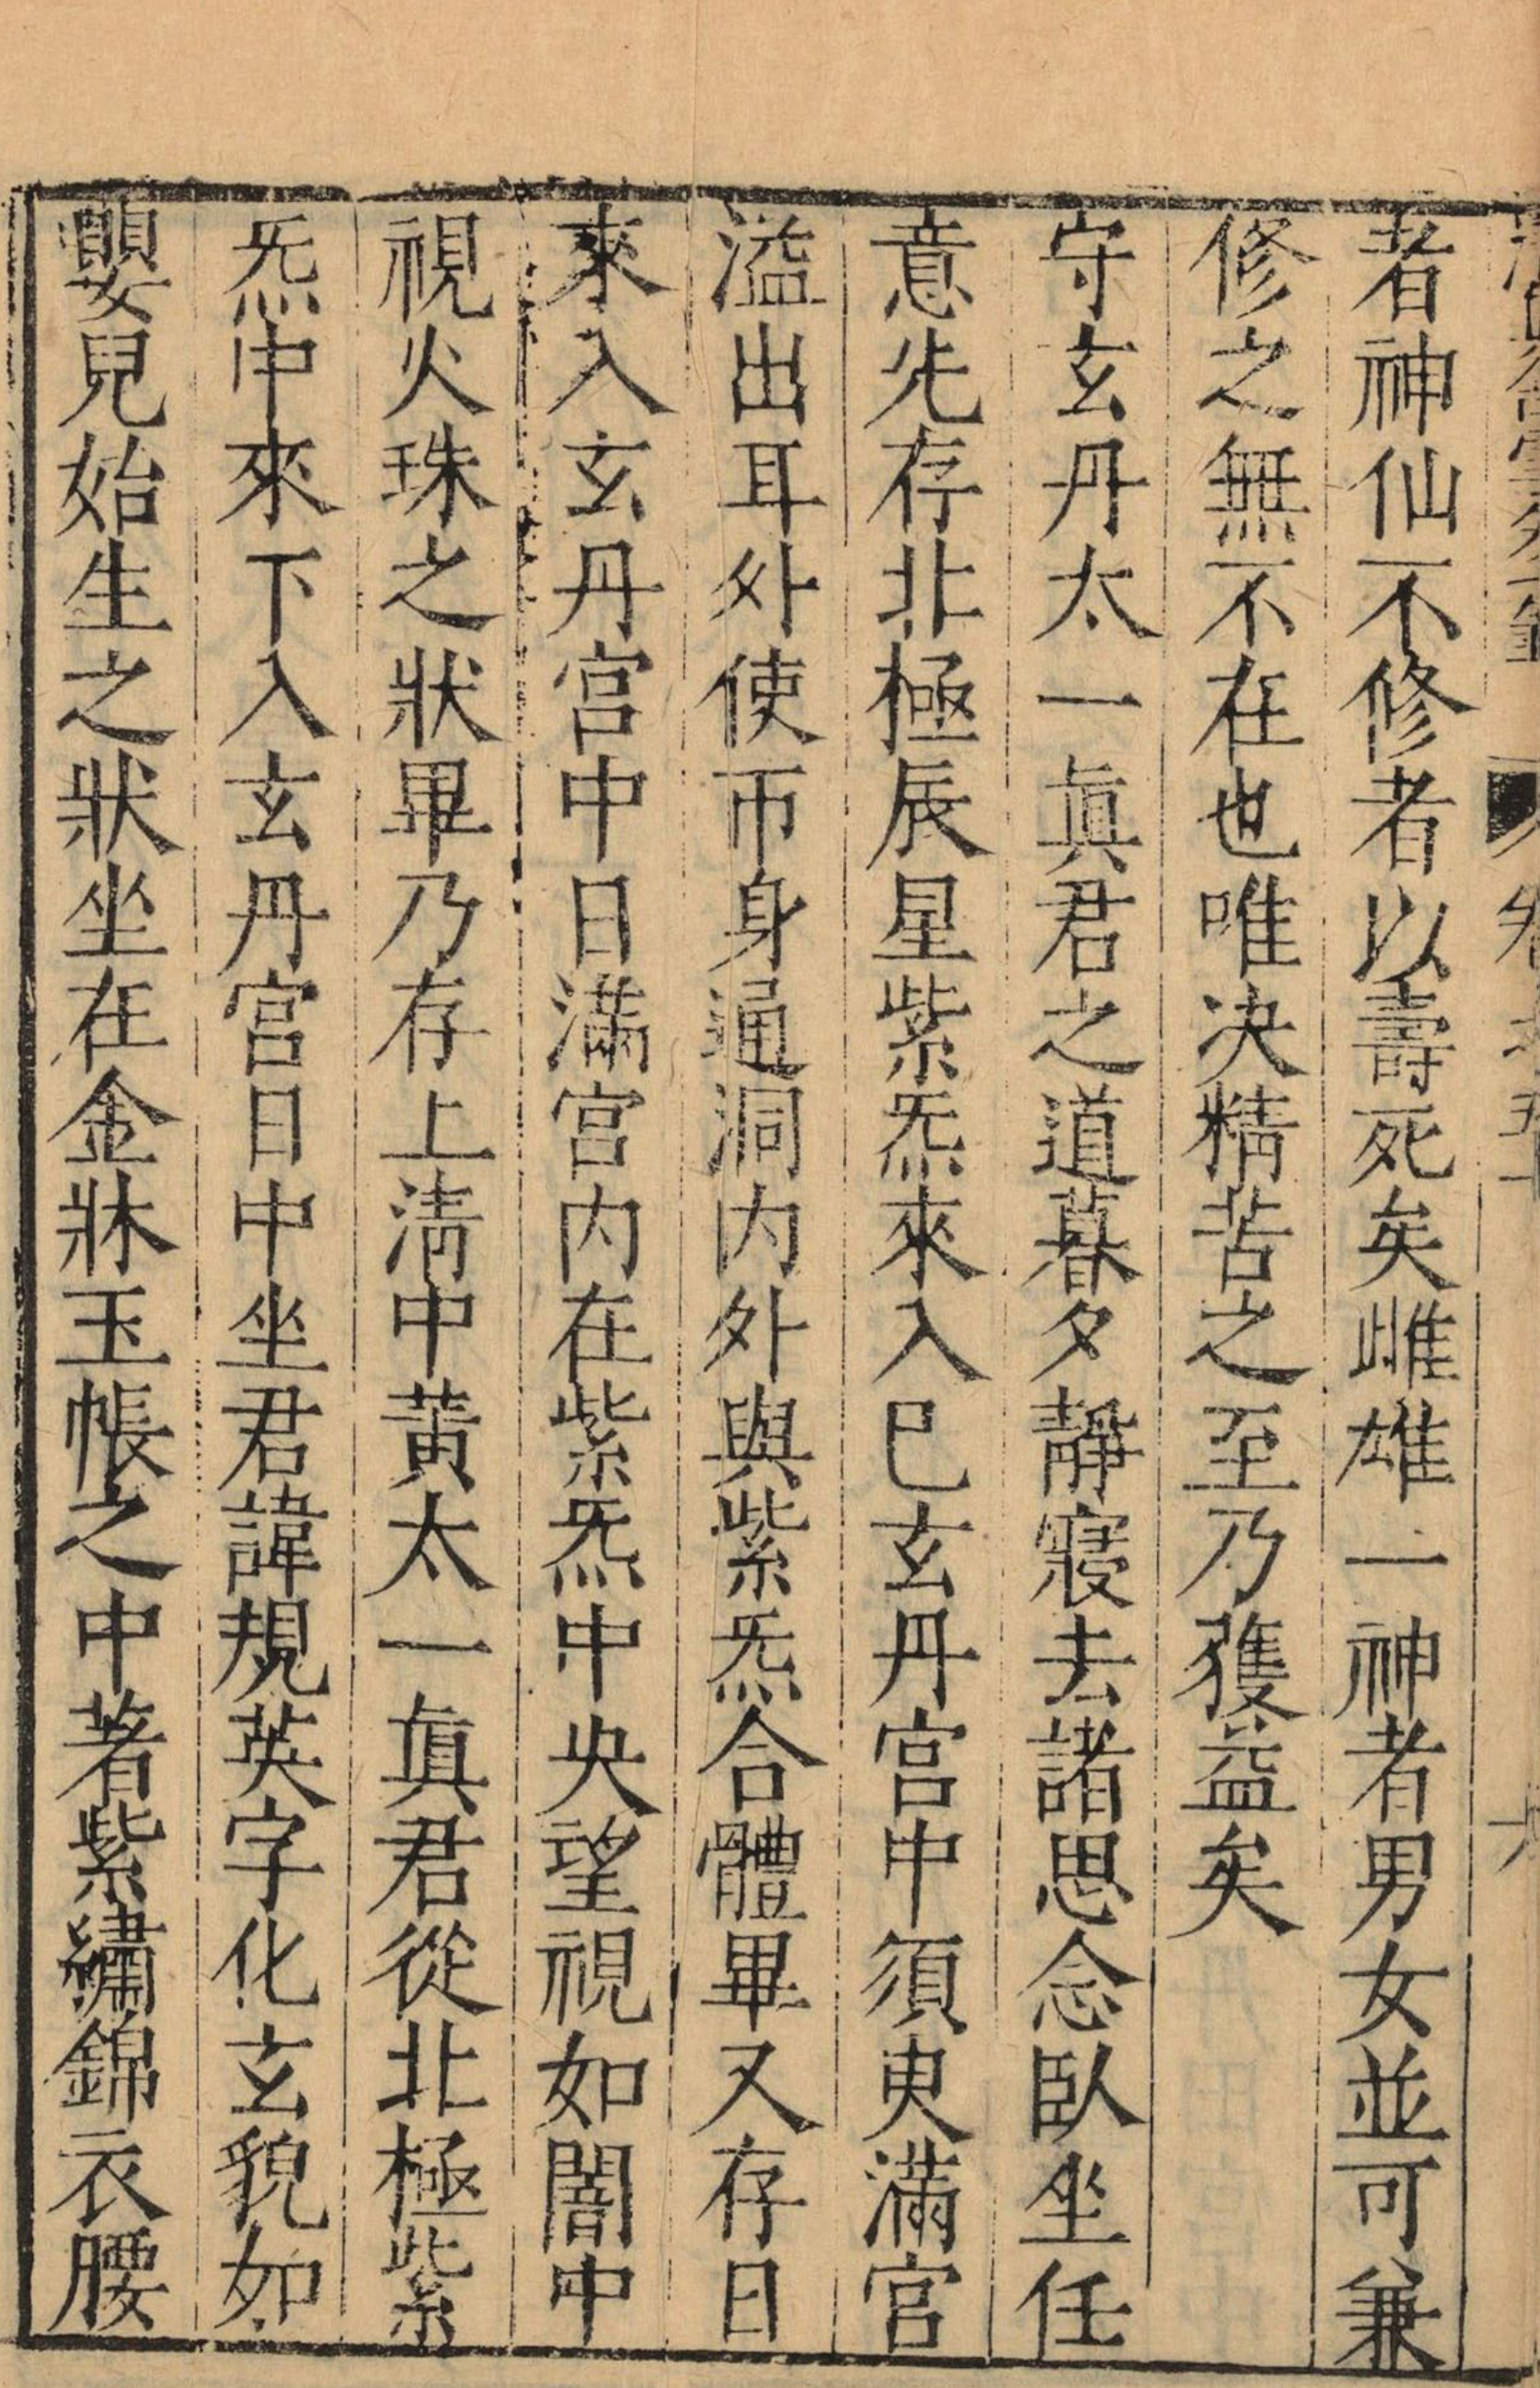 者神仙不修者以壽死矣雌雄一神者男女並可兼
修之無不在也唯决精苦之至乃獲益矣
守玄丹太一眞君之道暮夕靜寢去諸思念臥坐任
意先存北極辰星紫炁來入巳玄丹宫中須臾滿宫
溢出耳外使帀身通洞内外與紫炁合體畢又存日
來入玄丹宫中日滿宫内在紫炁中央望視如闇中
視火珠之狀畢乃存上清中黃太一眞君從北極紫
炁中來下入玄丹宫日中坐君諱規英字化玄貌如
嬰兒始生之狀坐在金牀玉帳之中著紫繡錦衣腰